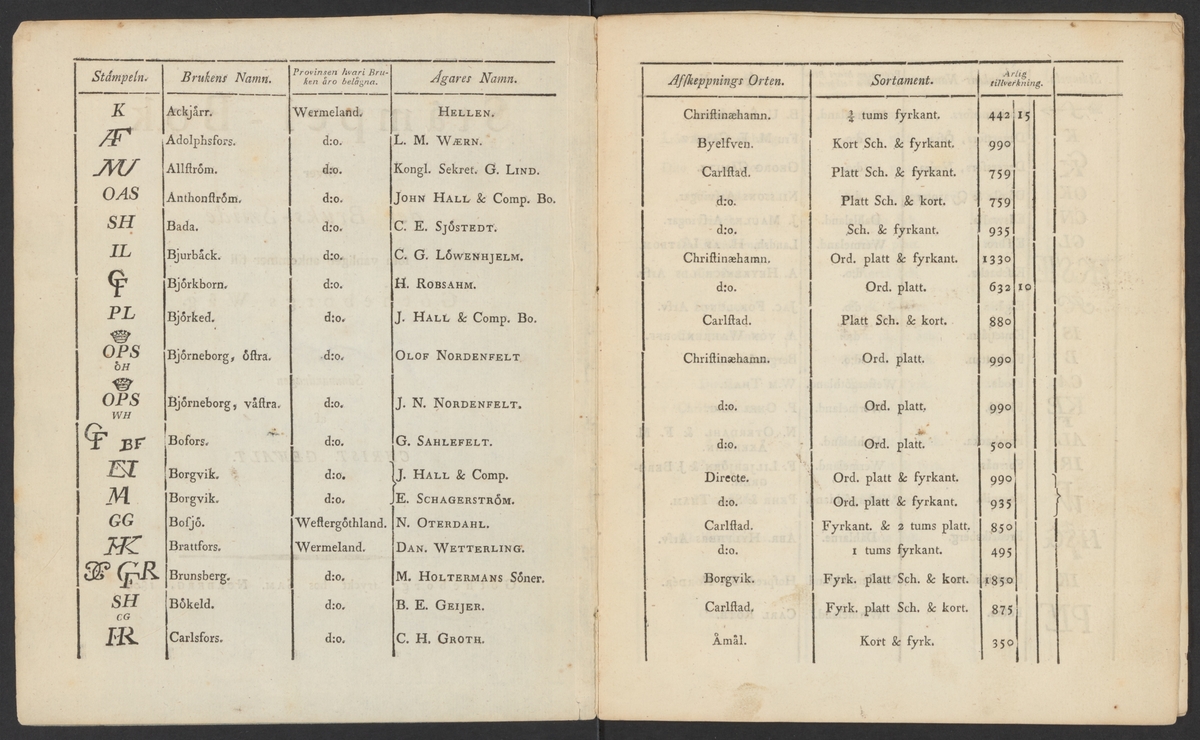 Stämpeln. Brukens Namn. Provinsen hvari Bruken äro belägna. Ägares Namn.
K Ackjärr. Wermeland. HELLEN.
Adolphsfors. d:o. L. M. WÆRN.
Allſtröm. d:o. Kongl. Sekret. G. LIND.
OAS Anthonſtröm. d:o. JOHN HALL & Comp. Bo.
SH Bada. d:o. C. E. SJÖSTEDT.
IL Bjurbäck. d:o. C. G. LÖWENHJELM.
Björkborn. d:o. H. ROBSAHM.
PL Björked. d:o. J. HALL & Comp. Bo.
OPS ÖH Björneborg, öſtra. d:o. OLOF NORDENFELT
OPS WH Björneborg, väſtra. d:o. J. N. NORDENFELT.
BF Bofors. d:o. G. SAHLEFELT.
Borgvik. d:o. J. HALL & Comp.
M Borgvik. d:o. E. SCHAGERSTRÖM.
GG Boſjö. Weſtergöthland. N. OTERDAHL.
HK Brattfors. Wermeland. DAN. WETTERLING.
Brunsberg. d:o. M. HOLTERMANS Söner.
SH CG Bökeld. d:o. B. E. GEIJER.
HR Carlsfors. d:o. C. H. GROTH.
Afſkeppnings Orten. Sortament. Årlig tillverkning.
Chriſtinæhamn. ¾ tums fyrkant. 442 15
Byelfven. Kort Sch. & fyrkant. 990
Carlſtad. Platt Sch. & fyrkant. 759
d:o. Platt Sch. & kort. 759
d:o. Sch. & fyrkant. 935
Chriſtinæhamn. Ord. platt & fyrkant. 1330
d:o. Ord. platt. 632 10
Carlſtad. Platt Sch. & kort. 880
Chriſtinæhamn. Ord. platt. 990
d:o. Ord. platt. 990
d:o. Ord. platt. 500
Directe. Ord. platt & fyrkant. 990
d:o. Ord. platt & fyrkant. 935
Carlſtad. Fyrkant. & 2 tums platt. 850
d:o. 1 tums fyrkant. 495
Borgvik. Fyrk. platt Sch. & kort. 1850
Carlſtad. Fyrk. platt Sch. & kort. 875
Åmål. Kort & fyrk. 350